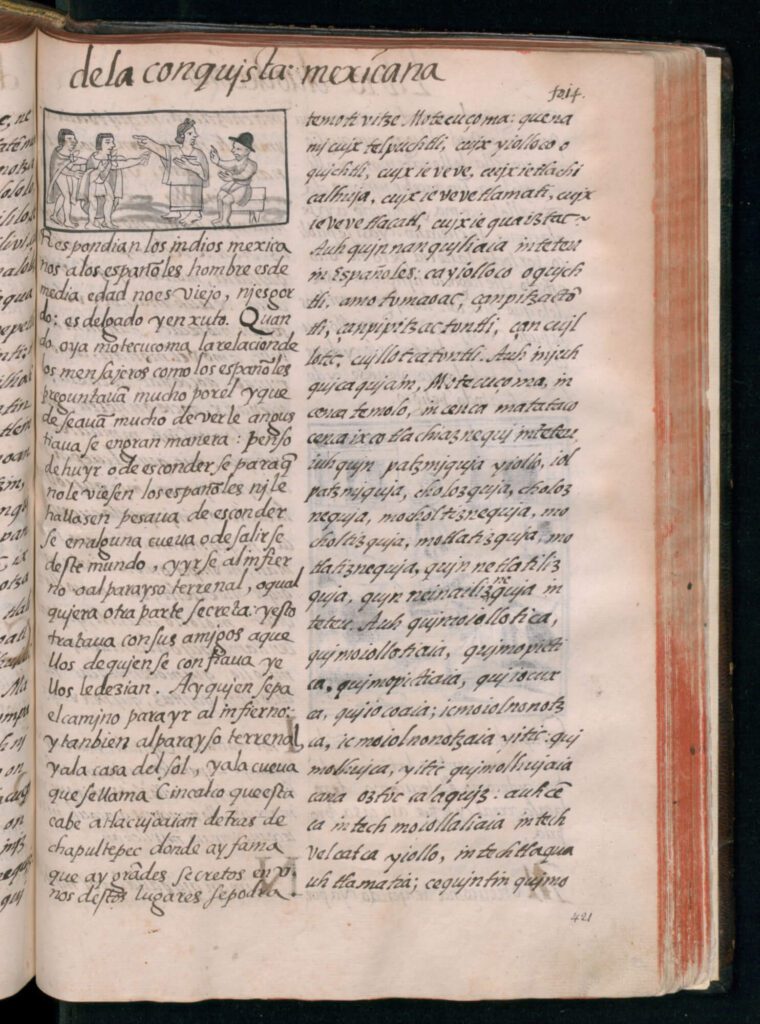 dela conquista mexicana
fo 14.
Respondian los indios mexica
nos alos españoles hombre es de
media edad no es viejo, nj es gor
do: es delgado y en xuto. Quan
do oya motecuçoma, la relacion de
los mensajeros como los españoles
preguntauã mucho por el y que
deseauã mucho de verle angus
tiaua se en gran manera: penso
de huyr o de esconder se para q̃
no le viesen los españoles nj le
hallasen pesaua de esconder
se en alguna cueua o de salir se
deste mundo, y yr se al infier
no o al parayso terrenal, o qual
quiera otra parte secreta: y esto
trataua con sus amigos aque
llos de quien se confiaua y e
llos le dezian. Ay quien sepa
el camjno para yr al infierno:
y tambien al parayso terrenal
y a la casa del sol, y a la cueua
que se llama Cincalco que esta
cabe atlacujoaian detras de
chapultepec donde ay fama
que ay grãdes secretos en v
nos destos lugares se podra
temoti vitze Motecuçoma: quena
mj cujx telpuchtli, cujx yiolloco o
qujchtli, cujx ie veve, cujx ie tlachi
calhuja, cujx ie veve tlamati, cujx
ie veve tlacatl, cujx ie quaiztac
Auh qujnnanqujliaia in teteu
in Españoles: ca yiolloco oqujch
tli, amo tomaoac, çan pitzactõ
tli, çan pipitzactontli, çan cujl
lotic, cujllotcatontli. Auh in juh
qujcaqujaia, Motecuçoma, in
cenca temolo, in cenca matataco
cenca ixco tlachiaznequi in teteu,
iuhqujn patzmjqujia yiollo, iol
patzmjqujia, cholozquja, choloz
nequja, mocholtiznequja, mo
choltizquja, motlatizquja, mo
tlatiznequja, qujnnetlatiliz
quja, qujnneinailizneqja in
teteu. Auh qujmoiollotica,
qujmoiollotiaia, qujmopicti
ca, qujmopictiaia, qujiocux
ca, qujiocoaia; ic moiolnonotz
ca, ic moiolnonotzaia yitic: quj
molhujca, yitic qujmolhujaia
cana oztoc calaqujz: auh cẽ
ca intech moiollaliaia intech
vel catca yiollo, intech tlaqua
uh tlamatia; cequintin qujmo
421